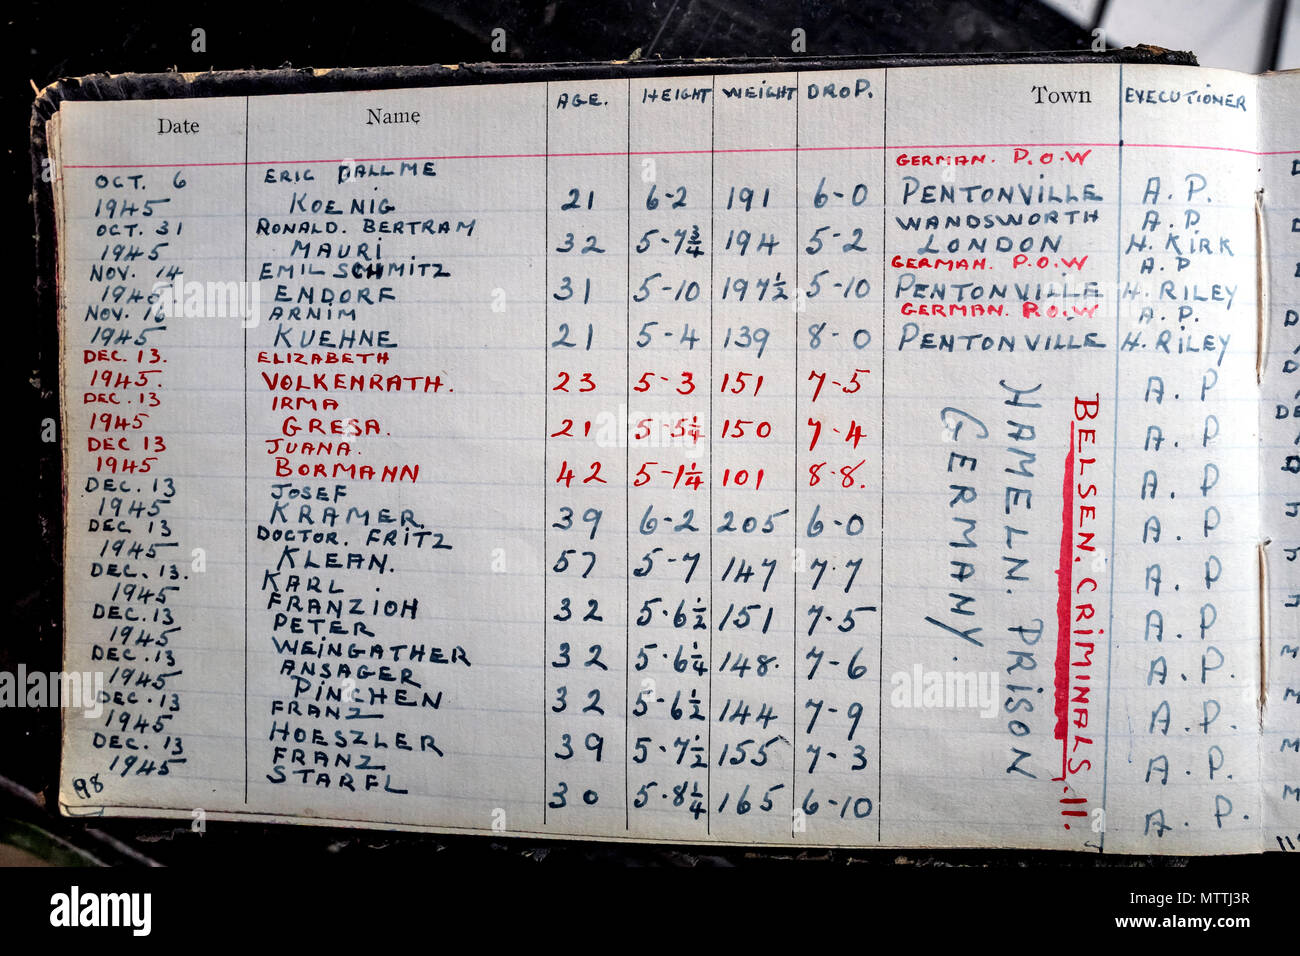 Date Name AGE. HEIGHT WEIGHT DROP. Town EXECUTIONER
GERMAN. P.O.W
OCT. 6 ERIC DALLME
1945 KOENIG 21 6-2 191 6-0 PENTONVILLE A.P.
OCT. 31 RONALD. BERTRAM WANDSWORTH A.P
1945 MAURI 32 5-7¾ 194 5-2 LONDON H. KIRK
NOV. 14 EMIL SCHMITZ GERMAN. P.O.W A.P
1945. ENDORF 31 5-10 197½ 5-10 PENTONVILLE H. RILEY
NOV. 16 ARNIM GERMAN. P.O.W A.P.
1945 KUEHNE 21 5-4 139 8-0 PENTONVILLE H. RILEY
DEC. 13. ELIZABETH
1945. VOLKENRATH. 23 5-3 151 7-5 A.P
DEC. 13 IRMA
1945 GRESA. 21 5-5¼ 150 7-4 A.P
DEC 13 JUANA.
1945 BORMANN 42 5-1¼ 101 8-8. A.P
DEC. 13 JOSEF
1945 KRAMER 39 6-2 205 6-0 A.P
DEC 13 DOCTOR. FRITZ
1945 KLEAN. 57 5-7 147 7-7 A.P
DEC. 13. KARL.
1945 FRANZIOH 32 5.6½ 151 7-5 A.P
DEC. 13 PETER
1945 WEINGATHER 32 5.6¼ 148. 7-6 A.P.
DEC. 13 ANSAGER
1945 PINCHEN 32 5-6½ 144 7-9 A.P.
DEC. 13 FRANZ
1945 HOESZLER 39 5-7½ 155 7-3 A.P.
DEC. 13 FRANZ
1945 STARFL 30 5.8¼ 165 6-10 A.P.
HAMELN. PRISON
GERMANY.
BELSEN. CRIMINALS. 11.
98
alamy
Image ID: MTTJ3R
www.alamy.com